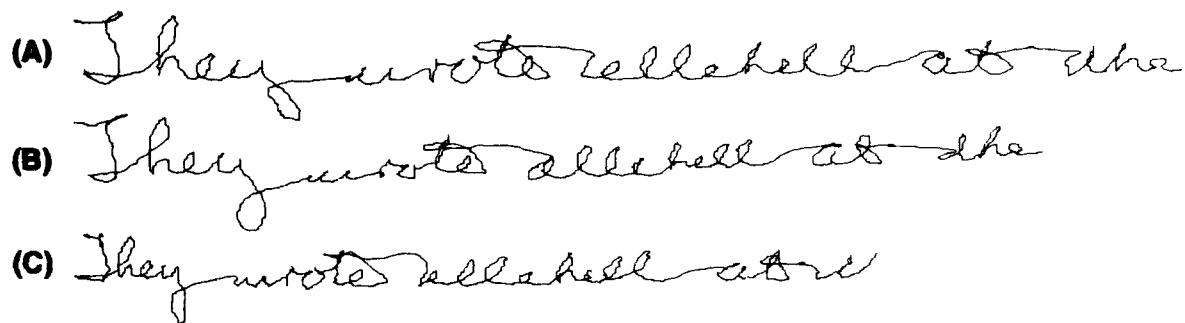 (A) They wrote ellehell at the
(B) They wrote ellehell at the
(C) They wrote ellehell at